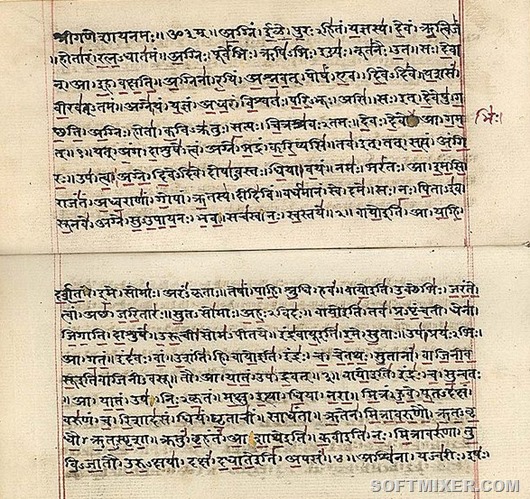 श्रीगणेशायनमः॥ ॐ३म्॥ अग्निं। ईळे। पुरःऽहितं। यज्ञस्य। देवं। ऋत्विजं
। होतारं। रत्नऽधातमं। अग्निः। पूर्वेभिः। ऋषिऽभिः। ईड्यः। नूतनैः। उत। सः। देवा
न्। आ। इह। वक्षति। अग्निना। रयिं। अश्नवत्। पोषं। एव। दिवेऽदिवे। यशसं।
वीरवत्ऽतमं। अग्ने। यं। यज्ञं। अध्वरं। विश्वतः। परिऽभूः। असि। सः। इत्। देवेषु। ग
च्छति। अग्निः। होता। कविऽक्रतुः। सत्यः। चित्रश्रवःऽतमः। देवः। देवे। आ। गम
भिः।
त्॥१॥ यत्। अंग। दाशुषे। त्वं। अग्ने। भद्रं। करिष्यसि। तव। इत्। तत्। सत्यं। अंगि
रः। उप। त्वा। अग्ने। दिवेऽदिवे। दोषाऽवस्तः। धिया। वयं। नमः। भरंतः। आ। इमसि।
राजंतं। अध्वराणां। गोपां। ऋतस्य। दीदिविं। वर्धमानं। स्वे। दमे। सः। नः। पिताऽइव
सूनवे। अग्ने। सुऽउपायनः। भव। सचस्व। नः। स्वस्तये॥२॥ वायो इति। आ। याहि।
दर्शत। इमे। सोमाः। अरंऽकृताः। तेषां। पाहि। श्रुधि। हवं। वायो इति। उक्थेभिः। जरंते
त्वां। अच्छ। जरितारः। सुतऽसोमाः। अहःऽविदः। वायो इति। तव। प्रऽपृंचती। धेना
जिगाति। दाशुषे। उरूची। सोमऽपीतये। इंद्रवायू इति। इमे। सुताः। उप। प्रयःऽभिः।
आ। गतं। इंदवः। वां। उशंति। हि। वायो इति। इंद्रः। च। चेतथः। सुतानां। वाजिनीव
सू इति वाजिनीऽवसू। तौ। आ। यातं। उप। द्रवत्॥३॥ वायो इति। इंद्रः। च। सुन्वतः
। आ। यातं। उप। निःऽकृतं। मक्षु। इत्था। धिया। नरा। मित्रं। हुवे। पूतऽदक्षं।
वरुणं। च। रिशादसं। धियं। घृताचीं। साधंता। ऋतेन। मित्रावरुणौ। ऋतऽवृ
धौ। ऋतऽस्पृशा। क्रतुं। बृहंतं। आशाथे इति। कवी इति। नः। मित्रावरुणा। तु
विऽजातौ। उरुऽक्षया। दक्षं। दधाते इति। अपसं॥४॥ अश्विना। यज्वरीः। इषः।
SOFTMIXER.COM